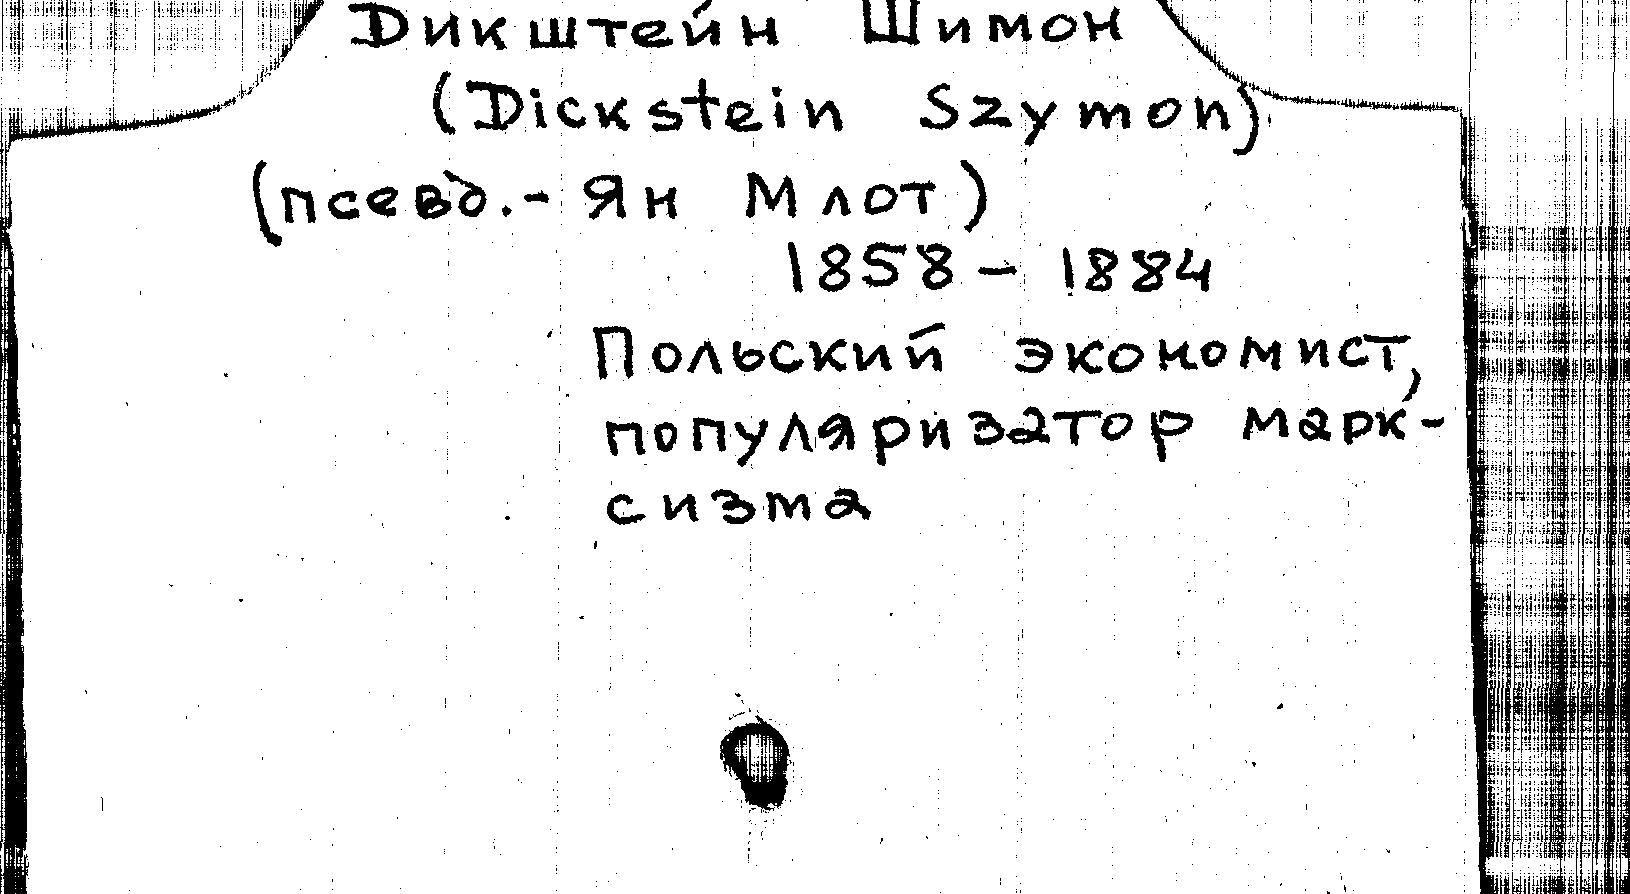 Дикштейн Шимон
(Dickstein Szymon)
(псевд.- Ян Млот)
1858 - 1884
Польский экономист,
популяризатор марк-
сизма